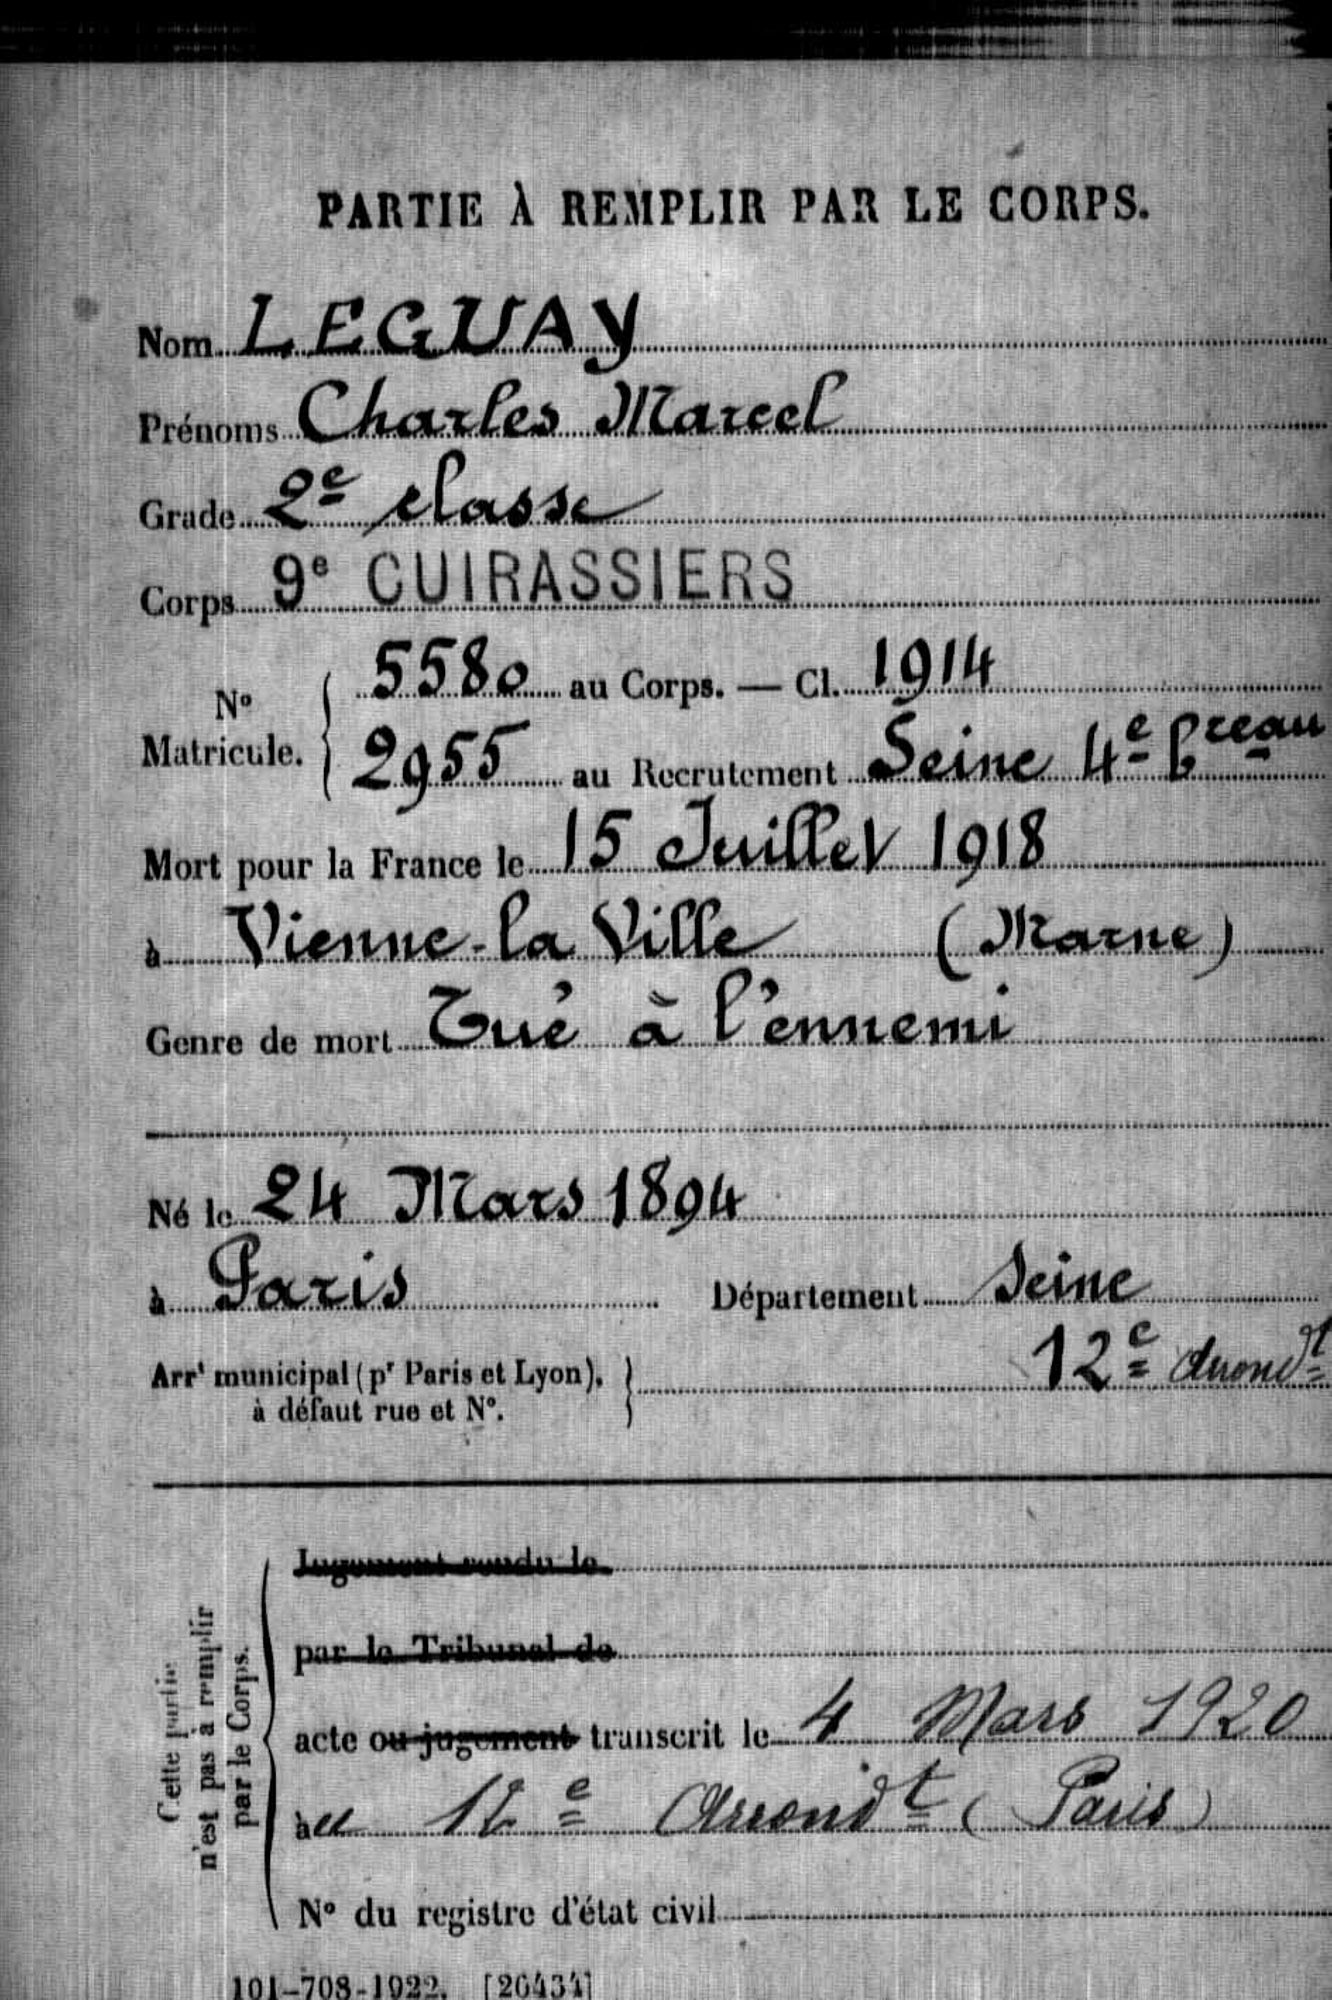 PARTIE À REMPLIR PAR LE CORPS.
Nom LEGUAY
Prénoms Charles Marcel
Grade 2e classe
Corps 9e CUIRASSIERS
No Matricule. { 5580 au Corps. — Cl. 1914
2955 au Recrutement Seine 4e breau
Mort pour la France le 15 Juillet 1918
à Vienne-la Ville (Marne)
Genre de mort Tué à l'ennemi
Né le 24 Mars 1894
à Paris Département Seine
Arrt municipal (pr Paris et Lyon), } 12e Arrondt
à défaut rue et No.
Cette partie
n'est pas à remplir
par le Corps.
Jugement rendu le
par le Tribunal de
acte ou jugement transcrit le 4 Mars 1920
àu 12e Arrondt (Paris)
No du registre d'état civil
101-708-1922. [26434]